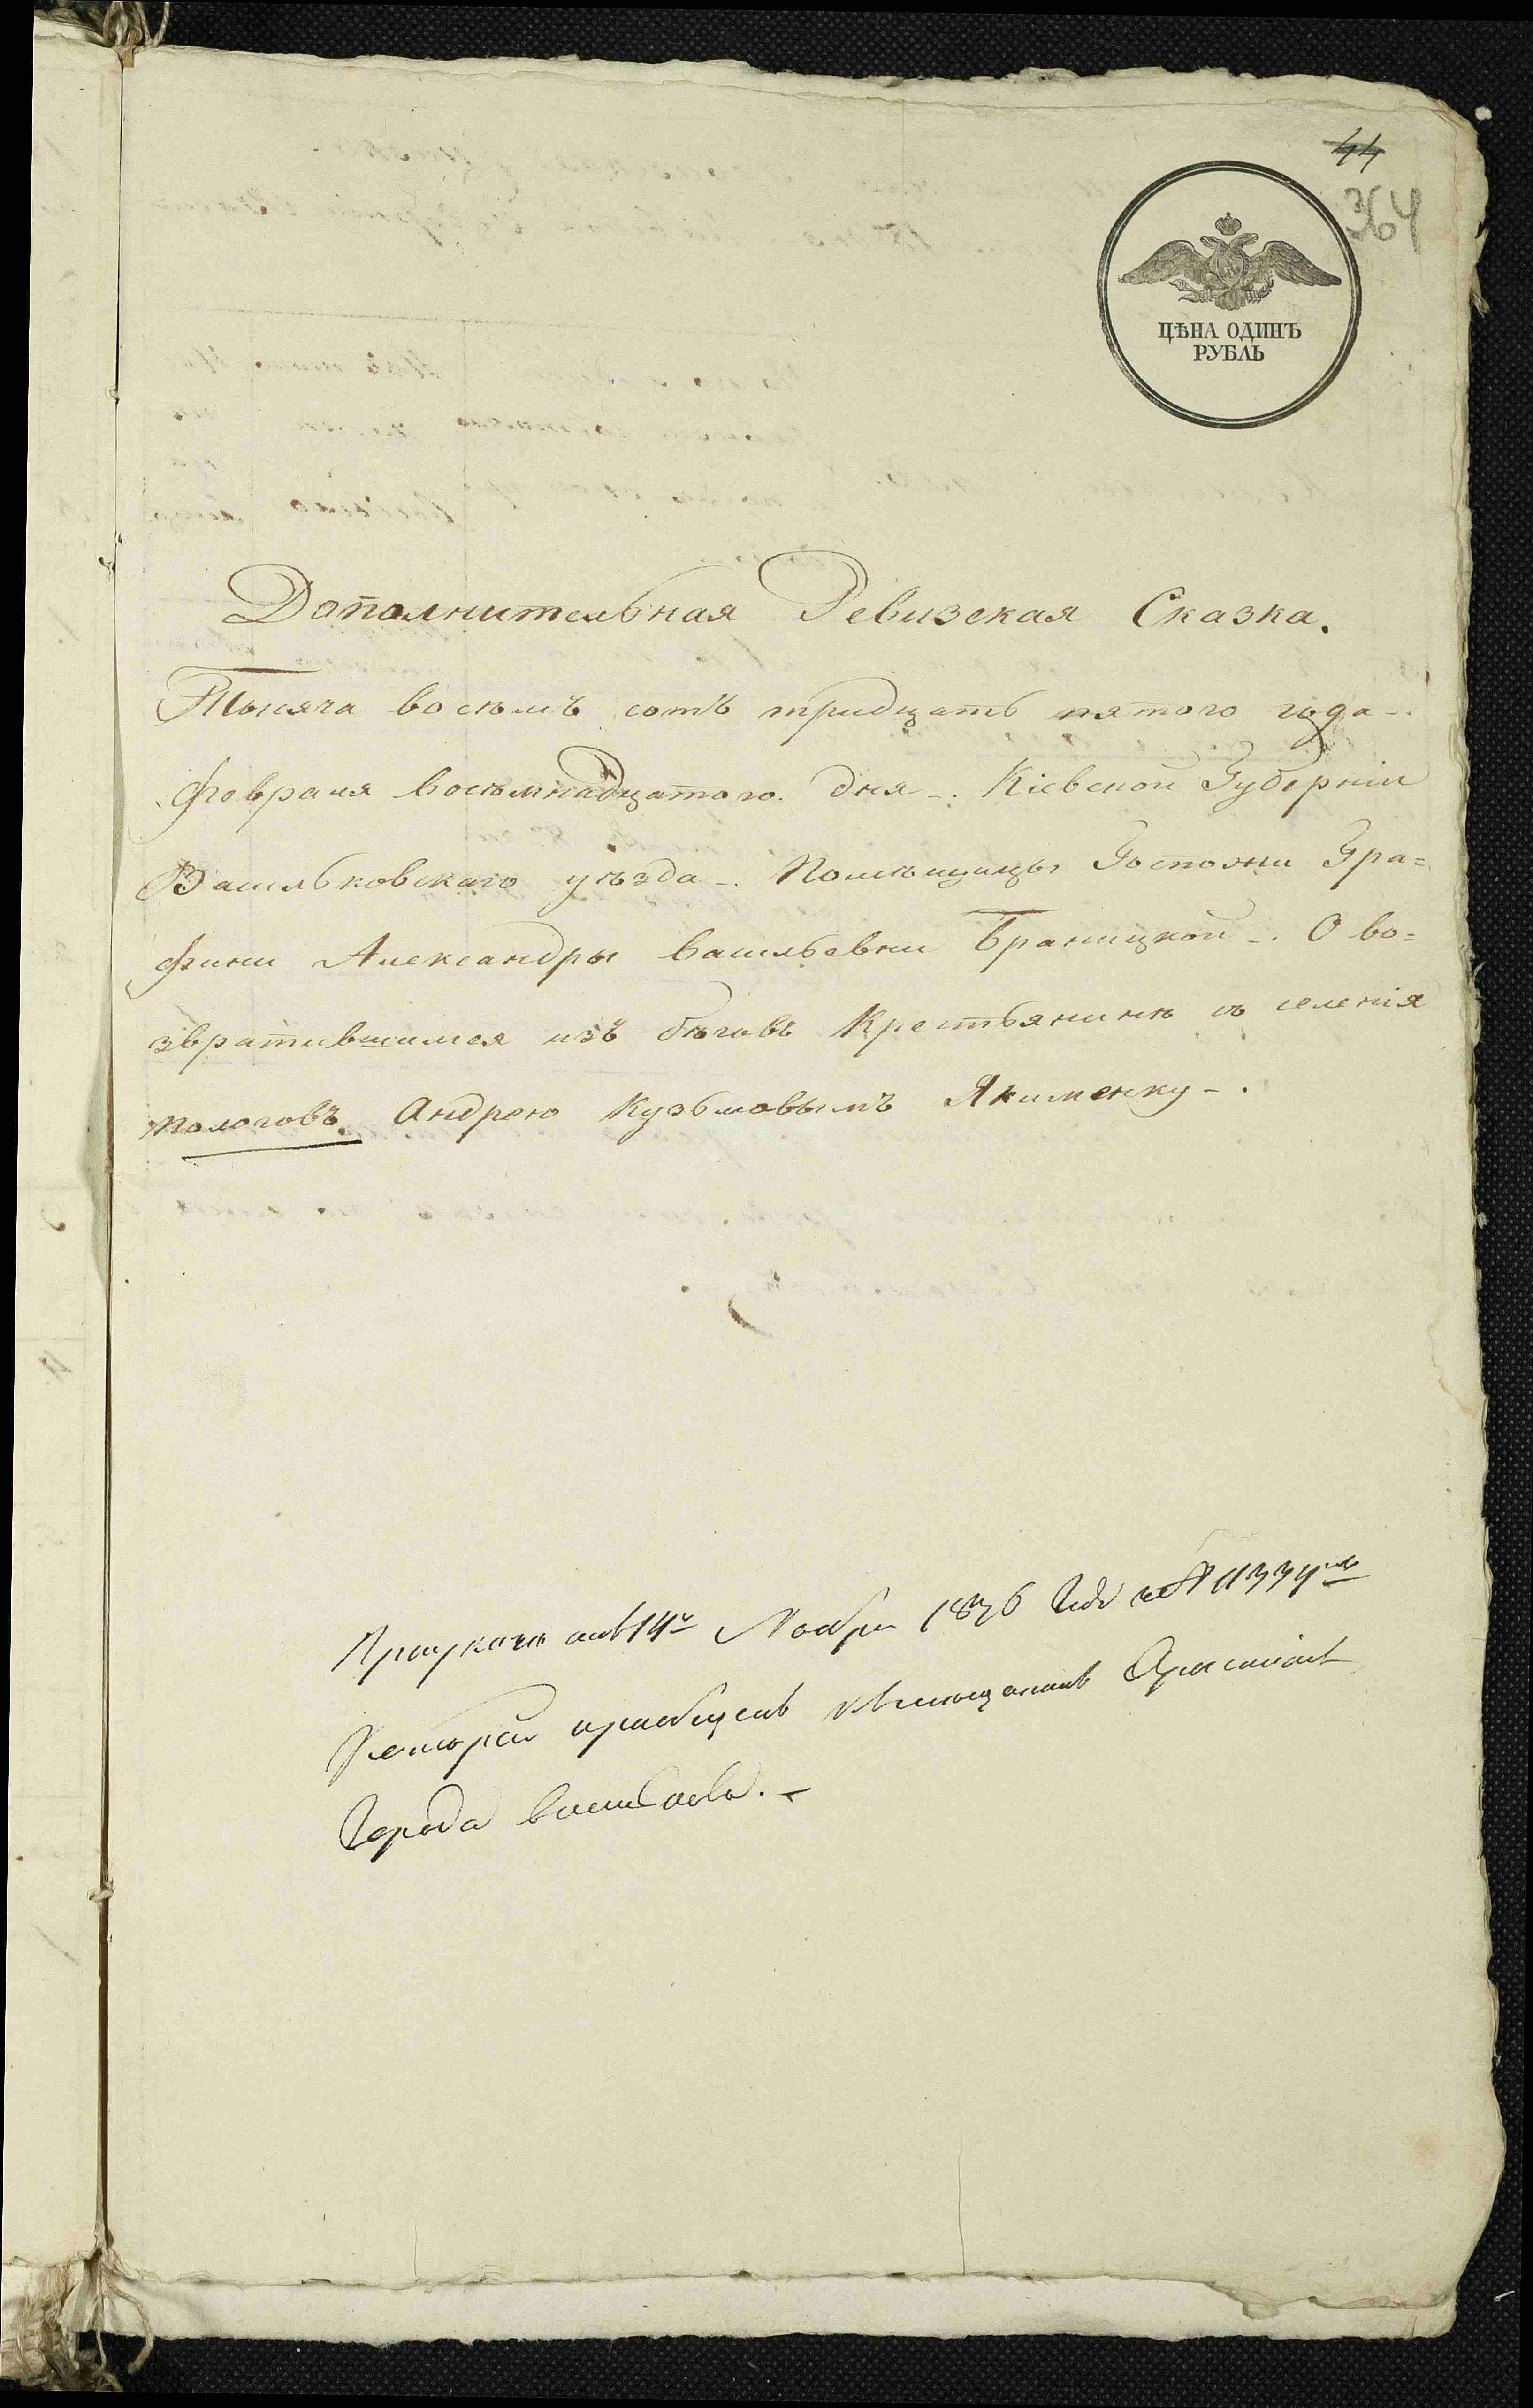 44
364
ЦѢНА ОДИНЪ
РУБЛЬ
Дополнительная Ревизская Сказка.
Тысяча восемъ сотъ тридцать пятого года -.
февраля восемнадцатого. дня -. Кіевской Губерніи
Васильковскаго уѣзда -. Помѣщицы Госпожи Гра=
фини Александры Васильевни Браницкой -. О во=
звратившимся изъ бѣговъ Крестьянинѣ съ селенія
Пологовъ. Андрею Кузьмовымъ Якименку -.
14 Ноября 1836 Года за № 11334
Которой
Города Василькова. -